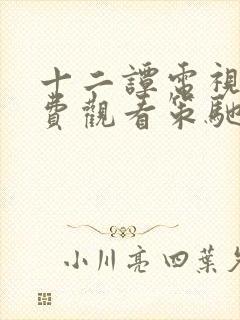 十二譚電視
費觀看策馳
小川亮四葉